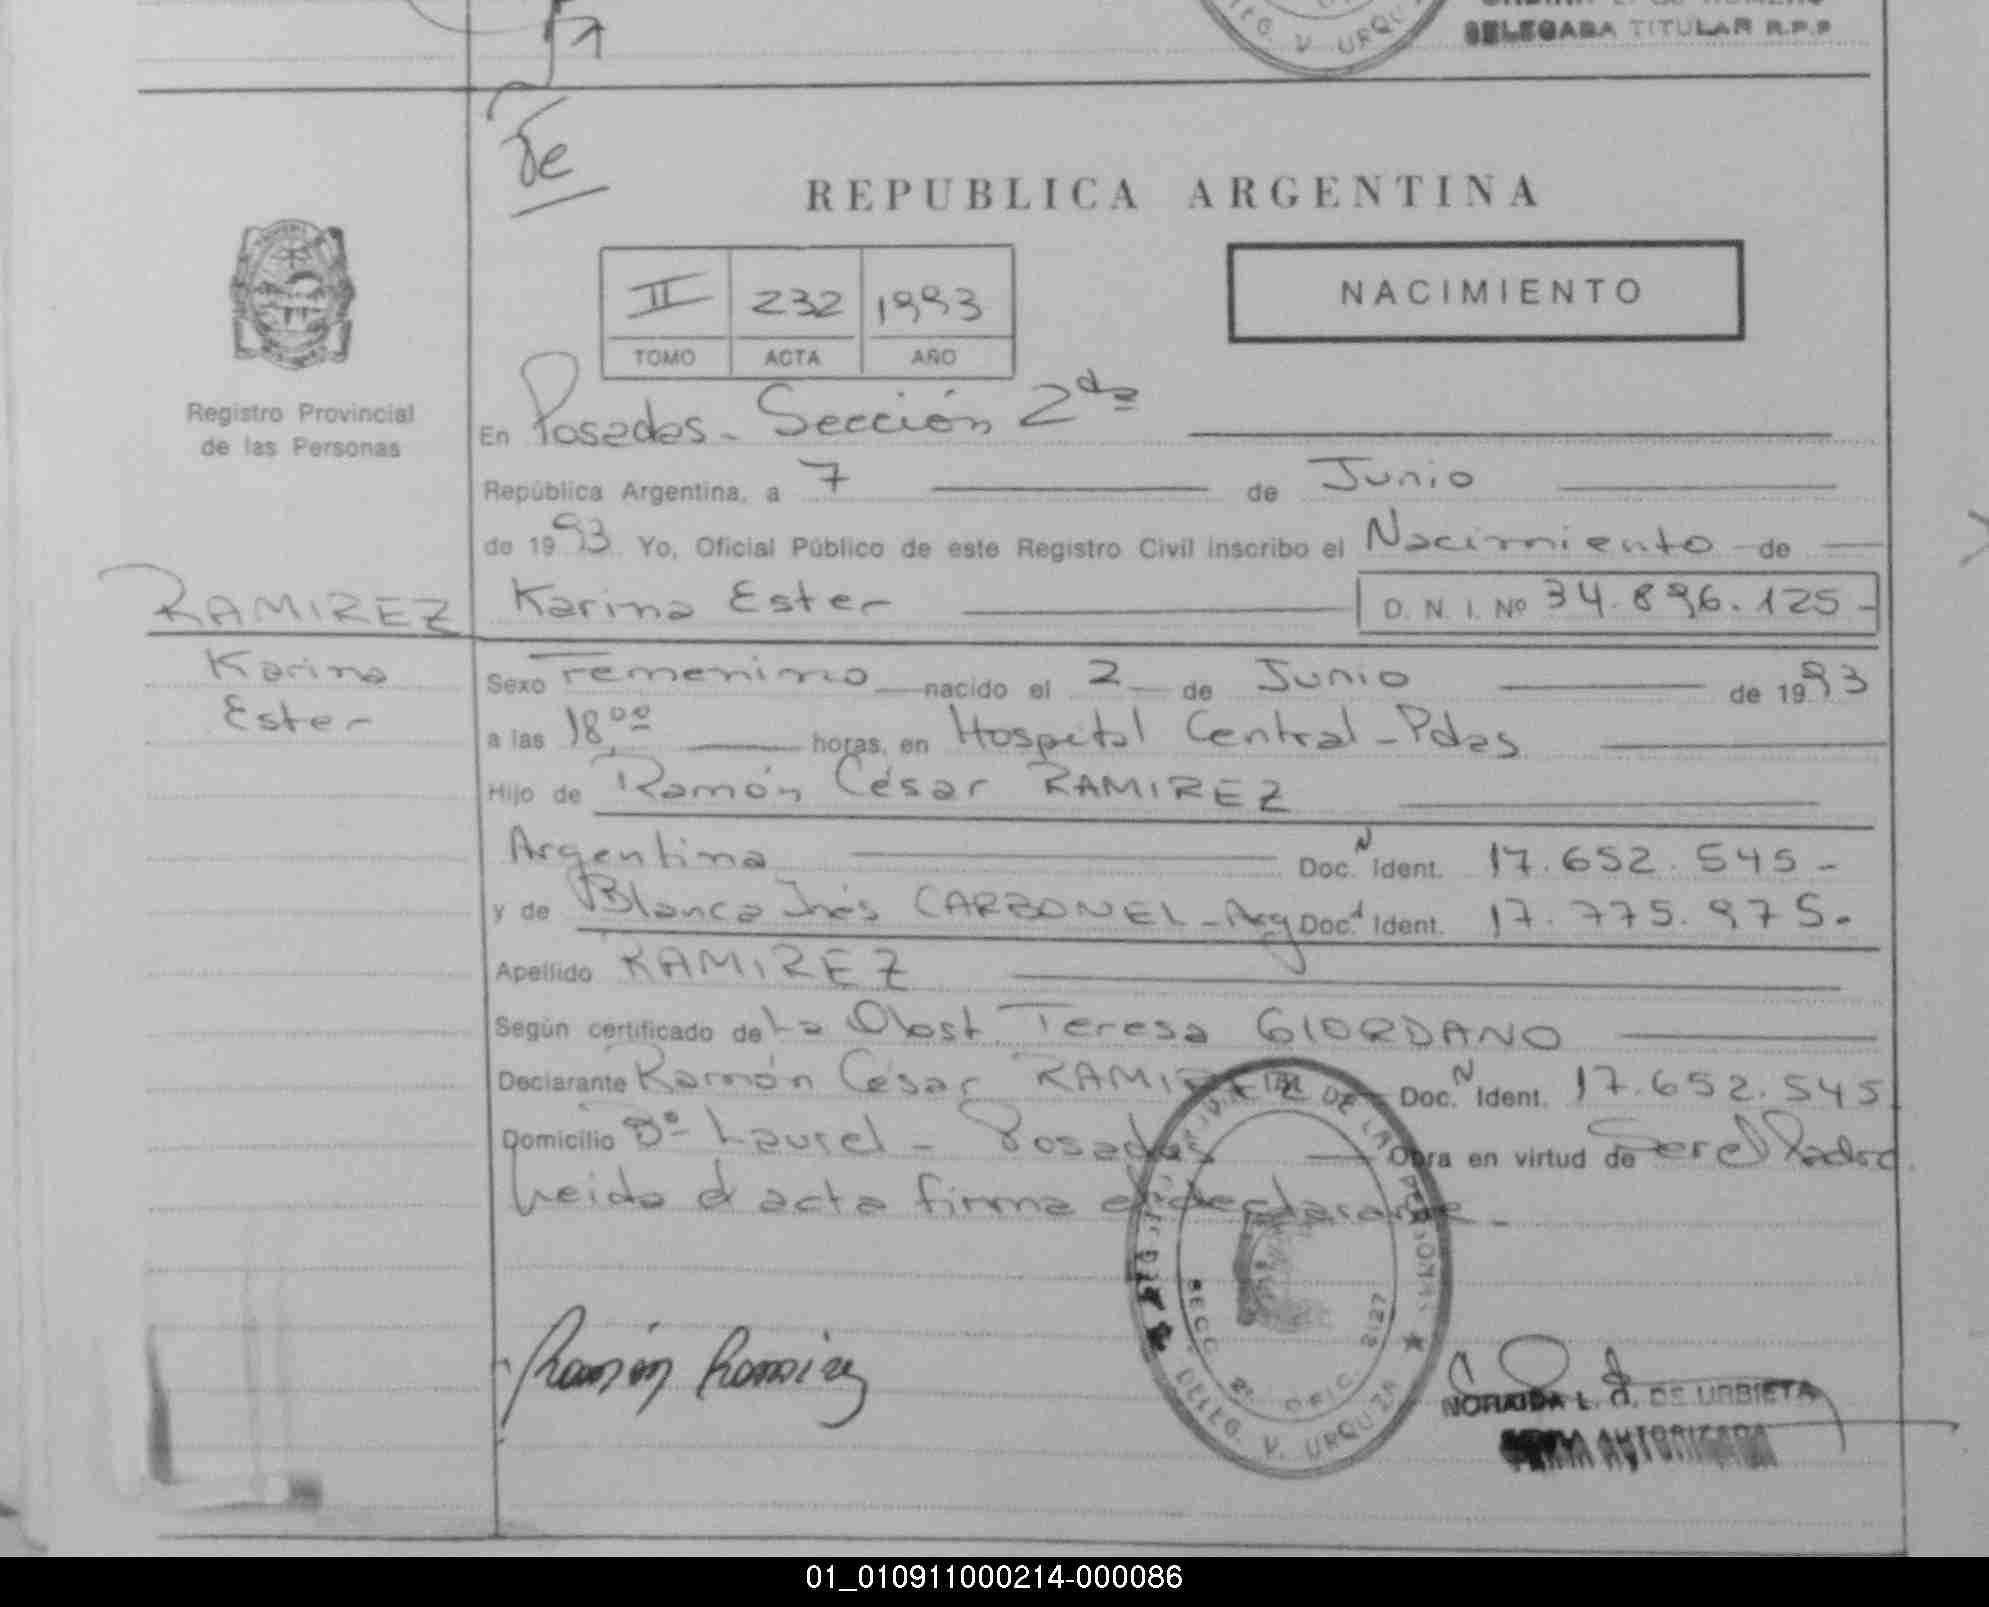 DELEGADA TITULAR R.P.P
DELEG. V. URQUIZA
REPUBLICA ARGENTINA
II 232 1993
TOMO ACTA AÑO
NACIMIENTO
Registro Provincial
de las Personas
En Posadas - Sección 2da
República Argentina, a 7 de Junio
de 1993 Yo, Oficial Público de este Registro Civil inscribo el Nacimiento de
RAMIREZ Karina Ester D. N. I. Nº 34.896.125-
Karina
Ester
Sexo Femenino nacido el 2 de Junio de 1993
a las 18,00 horas, en Hospital Central - Pdas
Hijo de Ramón César RAMIREZ
Argentina Doc. N Ident. 17.652.545-
y de Blanca Inés CARBONEL - Arg Doc. Ident. 17.775.975.-
Apellido RAMIREZ
Según certificado de La Obst. Teresa GIORDANO
Declarante Ramón César RAMIREZ Doc. N Ident. 17.652.545
Domicilio Bº Laurel - Posadas Obra en virtud de Ser el Padre
Leida el acta firma el declarante -
DE LAS PERSONAS
SECC. 2º OFIC. 2127
DELEG. V. URQUIZA
Ramón Ramirez
NORAIDA L. d. DE URBIETA
FIRMA AUTORIZADA
01_010911000214-000086